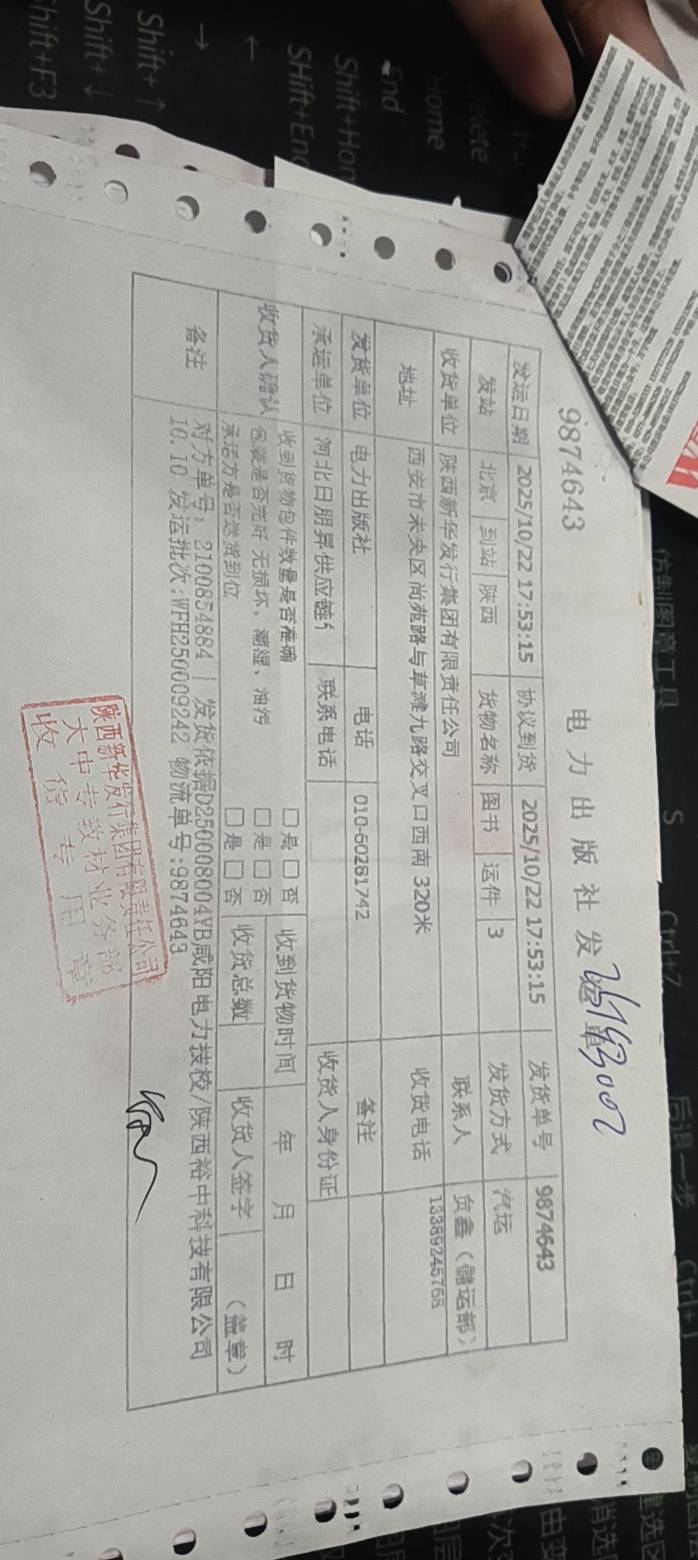 9874643
电力出版社发运单
发运日期 2025/10/22 17:53:15 协议到货 2025/10/22 17:53:15 发货单号 9874643
发站 北京 到站 陕西 货物名称 图书 运件 3 发货方式 汽运
收货单位 陕西新华发行集团有限责任公司 联系人 负鑫（储运部）
地址 西安市未央区尚苑路与草滩九路交叉口西南 320米 收货电话 13389245768
发货单位 电力出版社 电话 010-60281742 备注
承运单位 河北日朋昇供应链 联系电话 收货人身份证
收货人确认 收到货物包件数量是否准确 □是 □否 收到货物时间 年 月 日 时
包装是否完好 无损坏、潮湿、油污 □是 □否
承运方是否送货到位 □是 □否 收货总数 收货人签字 （盖章）
备注 对方单号：2100854884 | 发货依据D250008004YB咸阳电力技校/陕西裕中科技有限公司
10.10 发运批次:WFH250009242 物流单号:9874643
陕西新华发行集团有限责任公司
大中专教材业务部
收 专用章
Shift+F3
Shift+↓
Shift+↑
→
←
Shift+End
Shift+Hom
End
Home
仿制图章工具 S
后退一步